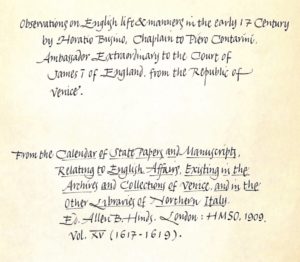 Observations on English life & manners in the early 17 Century
by Horatio Busino, Chaplain to Piero Contarini,
Ambassador Extraordinary to the Court of
James I of England, from the Republic of
Venice.
From the Calendar of State Papers and Manuscripts,
Relating to English Affairs, Existing in the
Archives and Collections of Venice, and in the
Other Libraries of Northern Italy.
Ed. Allen B. Hinds. London: HMSO, 1909.
Vol. XV (1617-1619).